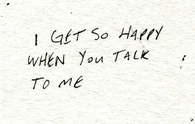 I GET SO HAPPY
WHEN YOU TALK
TO ME